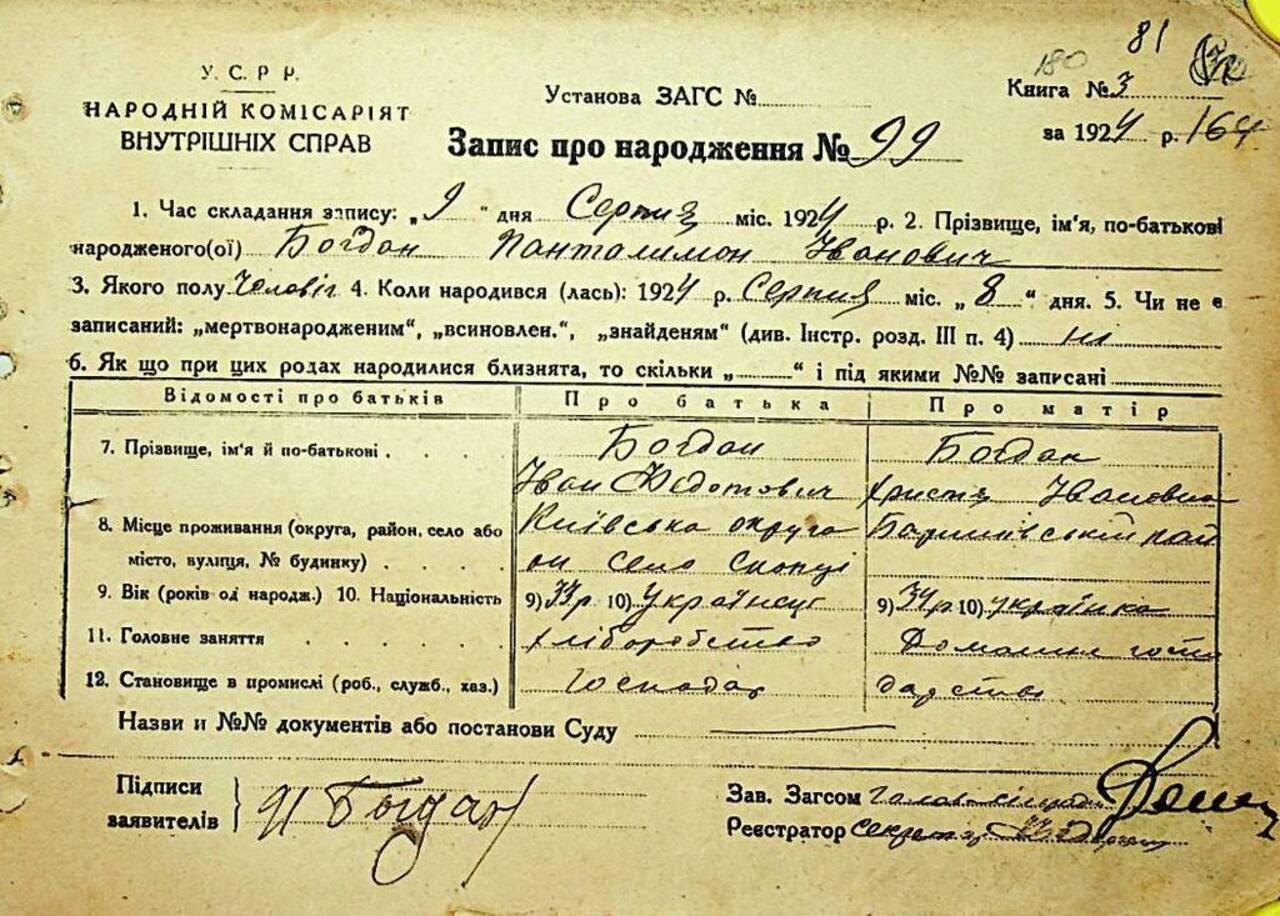 81
180
У. С. Р Р.
НАРОДНІЙ КОМІСАРІЯТ
ВНУТРІШНІХ СПРАВ
Установа ЗАГС №
Книга № 3
за 1924 р. 164
Запис про народження № 99
1. Час складання запису: „ 9 “ дня Серпня міс. 1924 р. 2. Прізвище, ім'я, по-батькові
народженого(ої) Богдан Панталимон Іванович
3. Якого полу Чоловіч 4. Коли народився (лась): 1924 р. Серпня міс. „ 8 “ дня. 5. Чи не є
записаний: „мертвонародженим“, „всиновлен.“, „знайденям“ (див. Інстр. розд. III п. 4) ні
6. Як що при цих родах народилися близнята, то скільки „ “ і під якими №№ записані
Відомості про батьків Про батька Про матір
7. Прізвище, ім'я й по-батькові . . . . Богдан Богдан
Іван Федотович Христя Івановна
8. Місце проживання (округа, район, село або Київська округа Баришівській рай
місто, вулиця, № будинку) . . . . он село Скопці
9. Вік (років од народж.) 10. Національність 9) 33 р 10) Українець 9) 34 р 10) українка
11. Головне заняття . . . . . . хліборобство Домашнє госпо
12. Становище в промислі (роб., служб., хаз.) Господар дарство
Назви и №№ документів або постанови Суду
Підписи
заявителів
Богдан
Зав. Загсом Голова сільради
Реєстратор Секретар